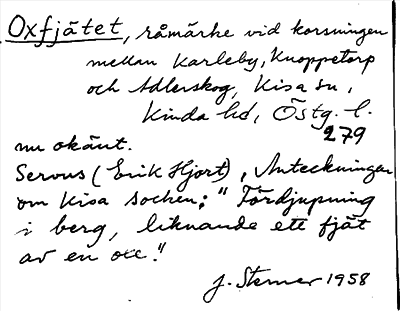 Oxfjätet, råmärke vid korsningen
mellan Karleby, Knoppetorp
och Adlerskog, Kisa sn,
Kinda hd, Östg. l.
279
nu okänt.
Servus (Erik Hjort), Anteckningar
om Kisa socken: "Fördjupning
i berg, liknande ett fjät
av en oxe."
J. Sterner 1958